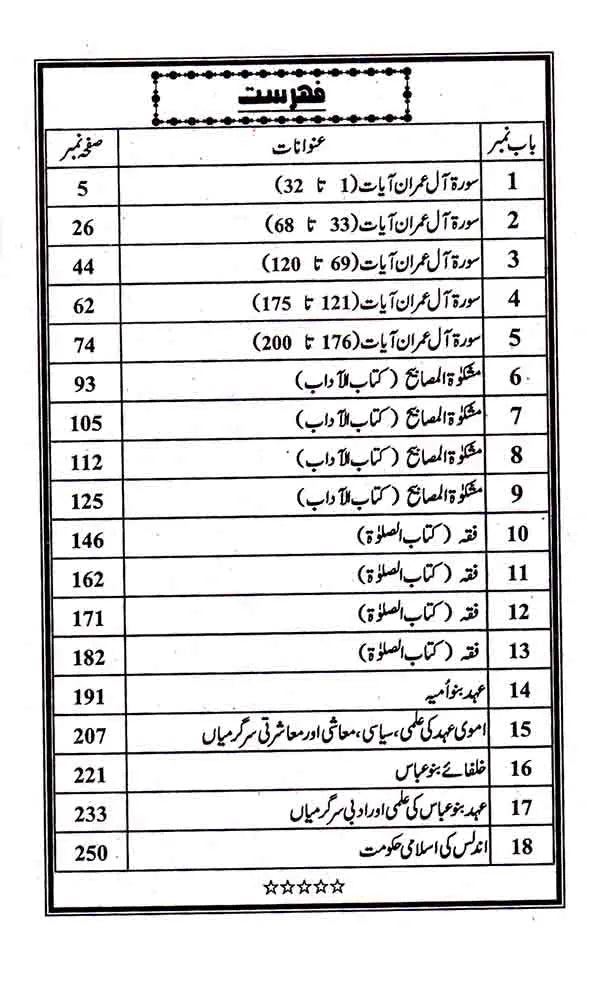 فہرست
باب نمبر عنوانات صفحہ نمبر
1 سورۃ آل عمران آیات (1 تا 32) 5
2 سورۃ آل عمران آیات (33 تا 68) 26
3 سورۃ آل عمران آیات (69 تا 120) 44
4 سورۃ آل عمران آیات (121 تا 175) 62
5 سورۃ آل عمران آیات (176 تا 200) 74
6 مشکوٰۃ المصابیح (کتاب الآداب) 93
7 مشکوٰۃ المصابیح (کتاب الآداب) 105
8 مشکوٰۃ المصابیح (کتاب الآداب) 112
9 مشکوٰۃ المصابیح (کتاب الآداب) 125
10 فقہ (کتاب الصلوٰۃ) 146
11 فقہ (کتاب الصلوٰۃ) 162
12 فقہ (کتاب الصلوٰۃ) 171
13 فقہ (کتاب الصلوٰۃ) 182
14 عہد بنو اُمیہ 191
15 اموی عہد کی علمی، سیاسی، معاشی اور معاشرتی سرگرمیاں 207
16 خلفائے بنو عباس 221
17 عہد بنو عباس کی علمی اور ادبی سرگرمیاں 233
18 اندلس کی اسلامی حکومت 250
☆☆☆☆☆